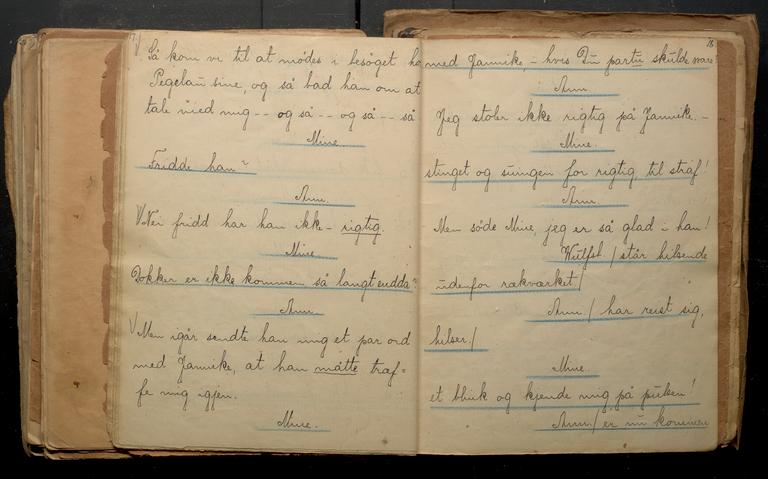 17.
Så kom vi til at mødes i besøget ho
Pegelau sine, og så bad han om at
tale med mig -- og så -- og så -- så
Mine.
Fridde han?
Ann.
Nei fridd har han ikke - rigtig.
Mine
Dokker er ikke kommen så langt endda?
Ann.
Men igår sendte han mig et par ord
med Jannike, at han måtte træf=
fe mig igjen.
Mine.
18.
med Jannike, - hvis Du partu skulde svare?
Ann.
Jeg stoler ikke rigtig på Jannike. -
Mine.
stinget og svingen for rigtig, til straf!
Ann.
Men søde Mine, jeg er så glad i han!
Wulfsl / står hilsende
udenfor rækværket /
Ann. / har reist sig,
hilser. /
Mine.
et blink og kjende mig på pulsen!
Ann / er nu kommen